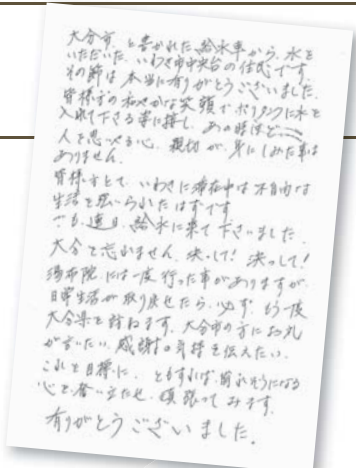 大分市、と書かれた給水車から、水を
いただいた、いわき市中央台の住民です
その節は本当に有りがとうございました。
皆様方の和やかな笑顔でポリタンクに水を
入れて下さる事に接し、あの時ほど
人を思いやる心、親切が、身にしみた事は
ありません。
皆様方とて、いわきに滞在中は不自由な
生活を強いられたはずです
でも、連日、給水に来て下さいました。
大分を忘れません、決して!決して!
湯布院には一度行った事がありますが、
日常生活が取り戻せたら、必ず、もう一度
大分県を訪ねます、大分市の方にお礼
が言いたい、感謝の気持を伝えたい、
これを目標に、ともすれば、折れそうになる
心を、奮い立たせ、頑張ってみます、
有りがとうございました。